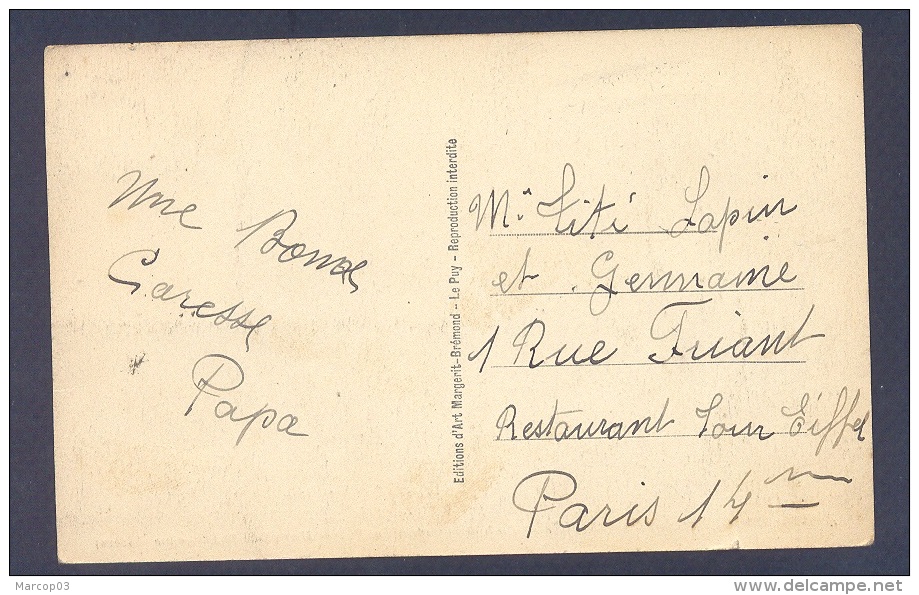 Une Bonne
Caresse
Papa
Editions d'Art Margerit-Brémond - Le Puy - Reproduction interdite
Mr Titi Lapin
et Germaine
1 Rue Friant
Restaurant Tour Eiffel
Paris 14me
Marcop03
delcampe.net